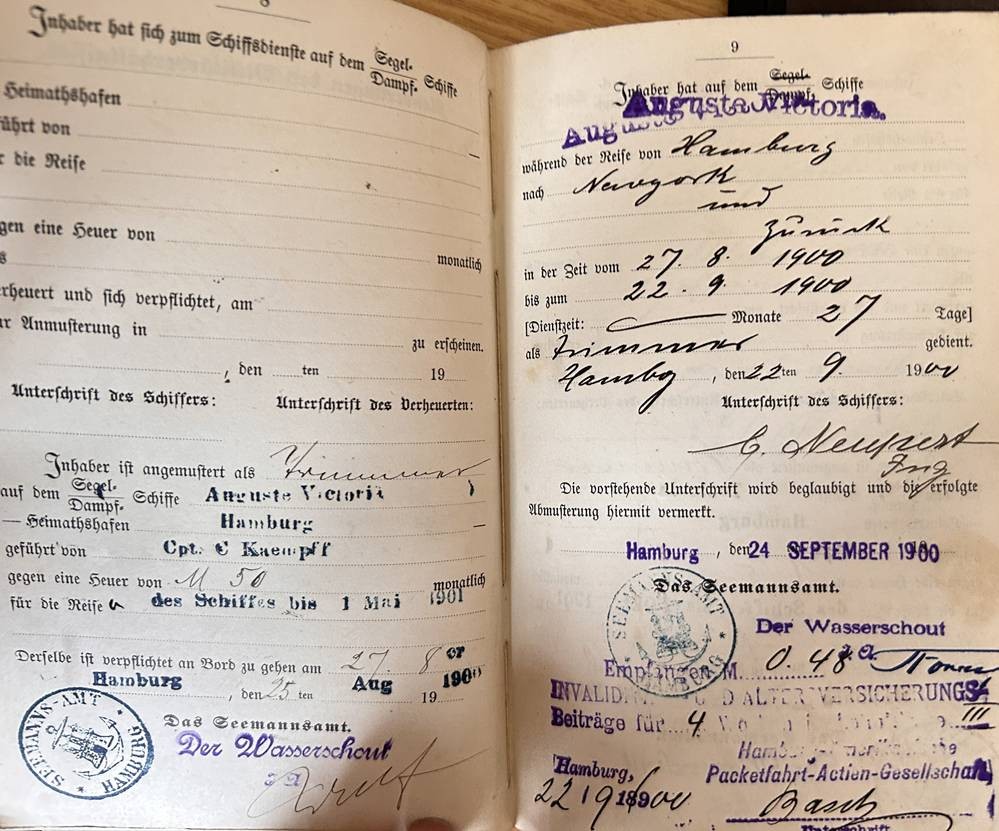 8
Inhaber hat sich zum Schiffsdienste auf dem Segel- Dampf- Schiffe
Heimathshafen
ührt von
die Reise
gen eine Heuer von
monatlich
erheuert und sich verpflichtet, am
r Anmusterung in
zu erscheinen.
, den ten 19
Unterschrift des Schiffers: Unterschrift des Verheuerten:
Inhaber ist angemustert als Trimmer
auf dem Segel- Dampf- Schiffe Auguste Victoria
Heimathshafen Hamburg
geführt von Cpt. C Kaempff
gegen eine Heuer von M 50 monatlich
für die Reise des Schiffes bis 1 Mai 1901
Derselbe ist verpflichtet an Bord zu gehen am 27. 8 er
Hamburg, den 25 ten Aug 1900
19
Das Seemannsamt.
Der Wasserschout
SEEMANNS-AMT HAMBURG
9
Inhaber hat auf dem Segel- Dampf- Schiffe
Augusta Victoria.
während der Reise von Hamburg
nach Newyork
und
zurück
in der Zeit vom 27. 8. 1900
bis zum 22. 9. 1900
[Dienstzeit: Monate 27 Tage]
als Trimmer gedient.
Hambg, den 22ten 9. 1900
Unterschrift des Schiffers:
C. Neupert
Ing
Die vorstehende Unterschrift wird beglaubigt und die erfolgte
Abmusterung hiermit vermerkt.
Hamburg, den 24 SEPTEMBER 1900
Das Seemannsamt.
SEEMANNS-AMT HAMBURG
Der Wasserschout
Empfangen M. 0.48
INVALIDI UND ALTERVERSICHERUNGS
Beiträge für 4
III
Hamburg-Amerikanische
Packetfahrt-Actien-Gesellschaft,
Hamburg,
22/9 1900
Basch
Unterschrift